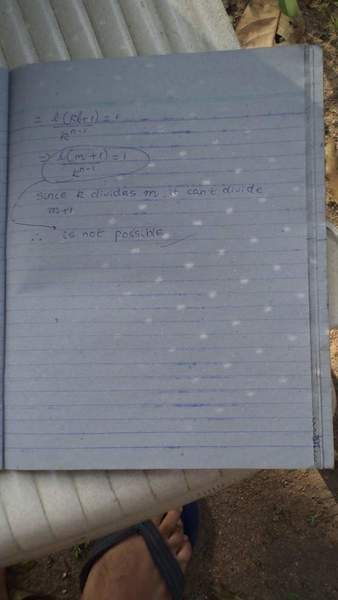 = l(kl+1) = 1
k^{n-1}
⇒ l(m+1) = 1
k^{n-1}
Since k divides m it can't divide
m+1
∴ is not possible